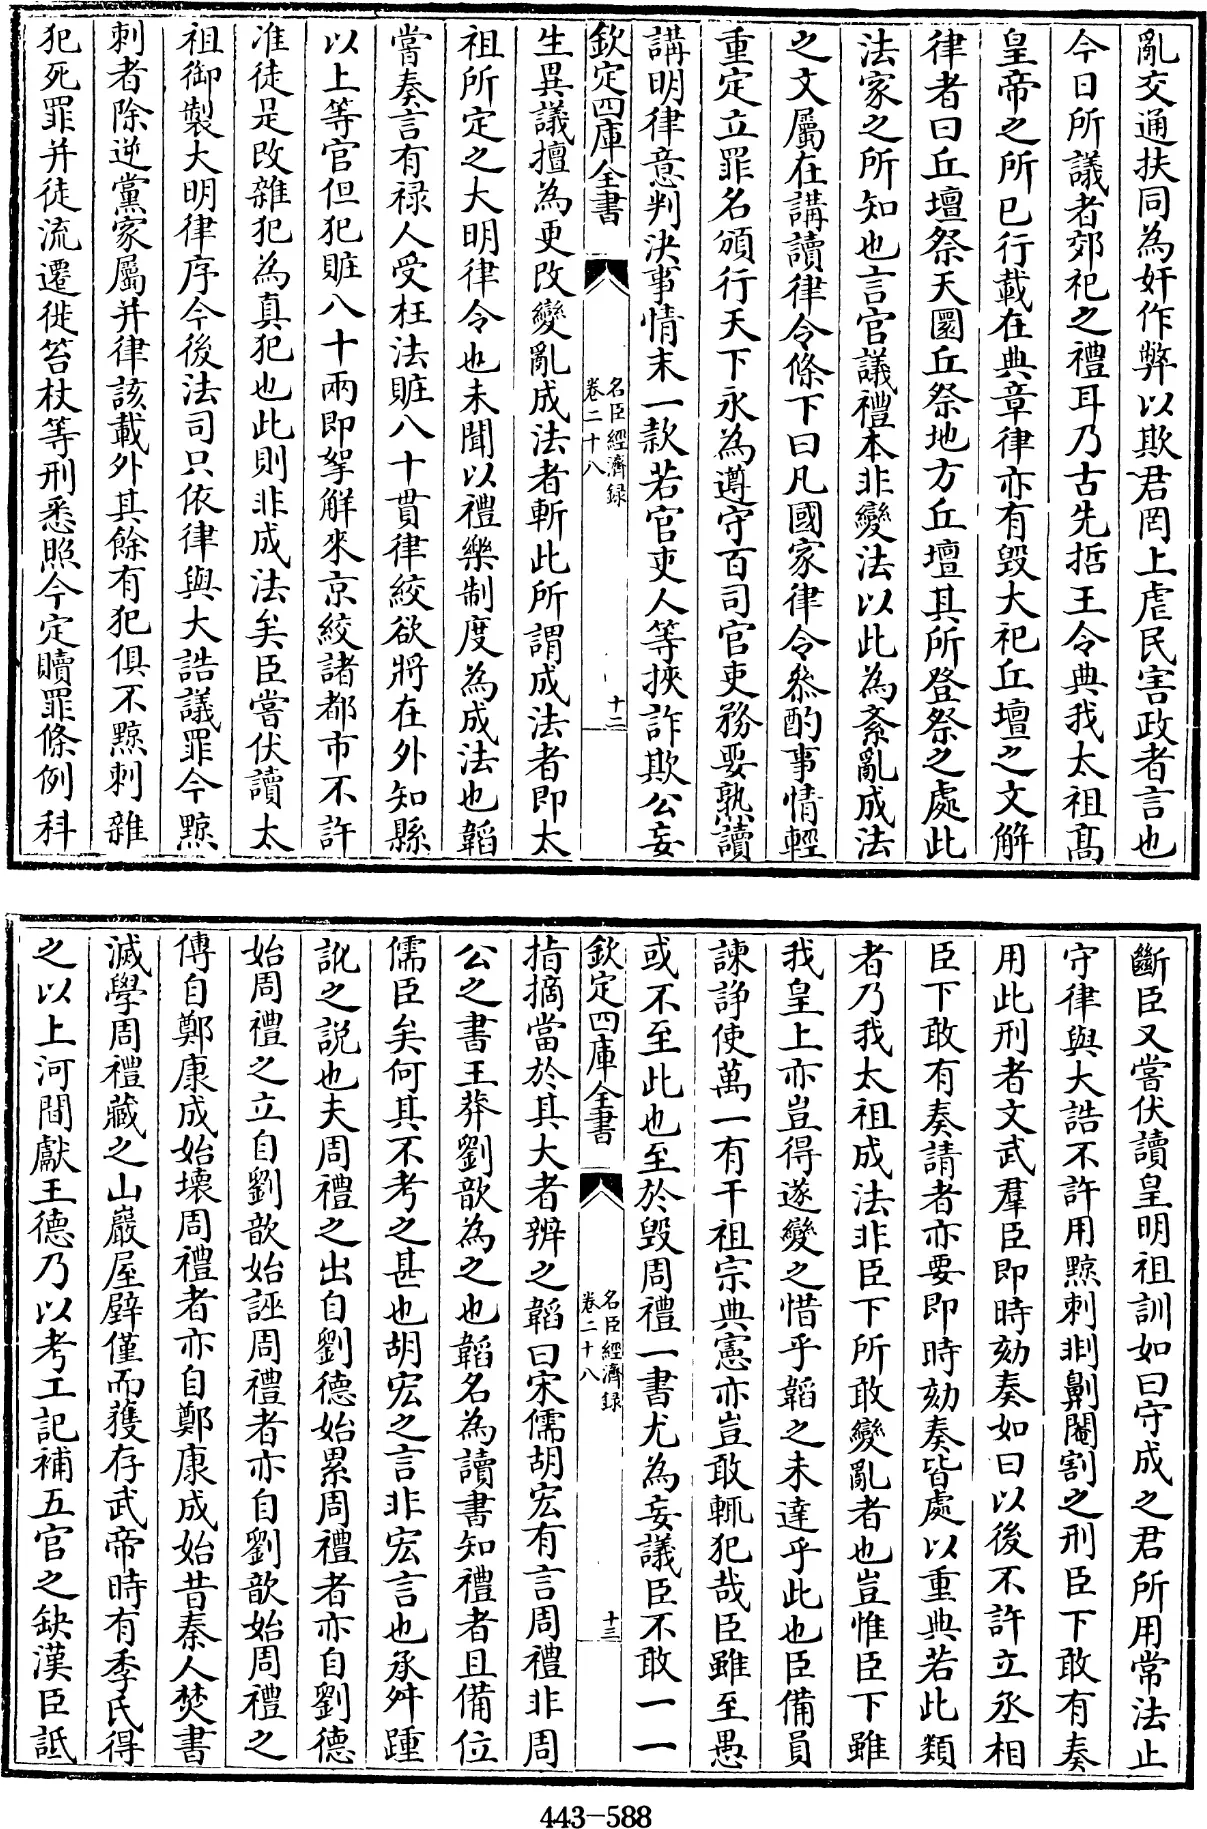 亂交通扶同為奸作弊以欺君罔上虐民害政者言也
今日所議者郊祀之禮耳乃古先哲王令典我太祖髙
皇帝之所已行載在典章律亦有毁大祀丘壇之文解
律者曰丘壇祭天圜丘祭地方丘壇其所登祭之處此
法家之所知也言官議禮本非變法以此為紊亂成法
之文屬在講讀律令條下曰凡國家律令叅酌事情輕
重定立罪名頒行天下永為遵守百司官吏務要熟讀
講明律意判決事情末一款若官吏人等挾詐欺公妄
欽定四庫全書
名臣經濟録
卷二十八
十二
生異議擅為更改變亂成法者斬此所謂成法者即太
祖所定之大明律令也未聞以禮樂制度為成法也韜
嘗奏言有禄人受枉法贓八十貫律絞欲將在外知縣
以上等官但犯贓八十兩即拏解來京絞諸都市不許
准徒是改雜犯為真犯也此則非成法矣臣嘗伏讀太
祖御製大明律序今後法司只依律與大誥議罪今黥
刺者除逆黨家屬并律該載外其餘有犯俱不黥刺雜
犯死罪并徒流遷徙笞杖等刑悉照今定贖罪條例科
斷臣又嘗伏讀皇明祖訓如曰守成之君所用常法止
守律與大誥不許用黥刺剕劓閹割之刑臣下敢有奏
用此刑者文武羣臣即時劾奏如曰以後不許立丞相
臣下敢有奏請者亦要即時劾奏皆處以重典若此類
者乃我太祖成法非臣下所敢變亂者也豈惟臣下雖
我皇上亦豈得遂變之惜乎韜之未達乎此也臣備員
諫諍使萬一有干祖宗典憲亦豈敢輒犯哉臣雖至愚
或不至此也至於毁周禮一書尤為妄議臣不敢一一
欽定四庫全書
名臣經濟録
卷二十八
十三
指摘當於其大者辨之韜曰宋儒胡宏有言周禮非周
公之書王莽劉歆為之也韜名為讀書知禮者且備位
儒臣矣何其不考之甚也胡宏之言非宏言也承舛踵
訛之説也夫周禮之出自劉德始累周禮者亦自劉德
始周禮之立自劉歆始誣周禮者亦自劉歆始周禮之
傳自鄭康成始壊周禮者亦自鄭康成始昔秦人焚書
滅學周禮藏之山巖屋壁僅而獲存武帝時有李氏得
之以上河間獻王德乃以考工記補五官之缺漢臣詆
443-588